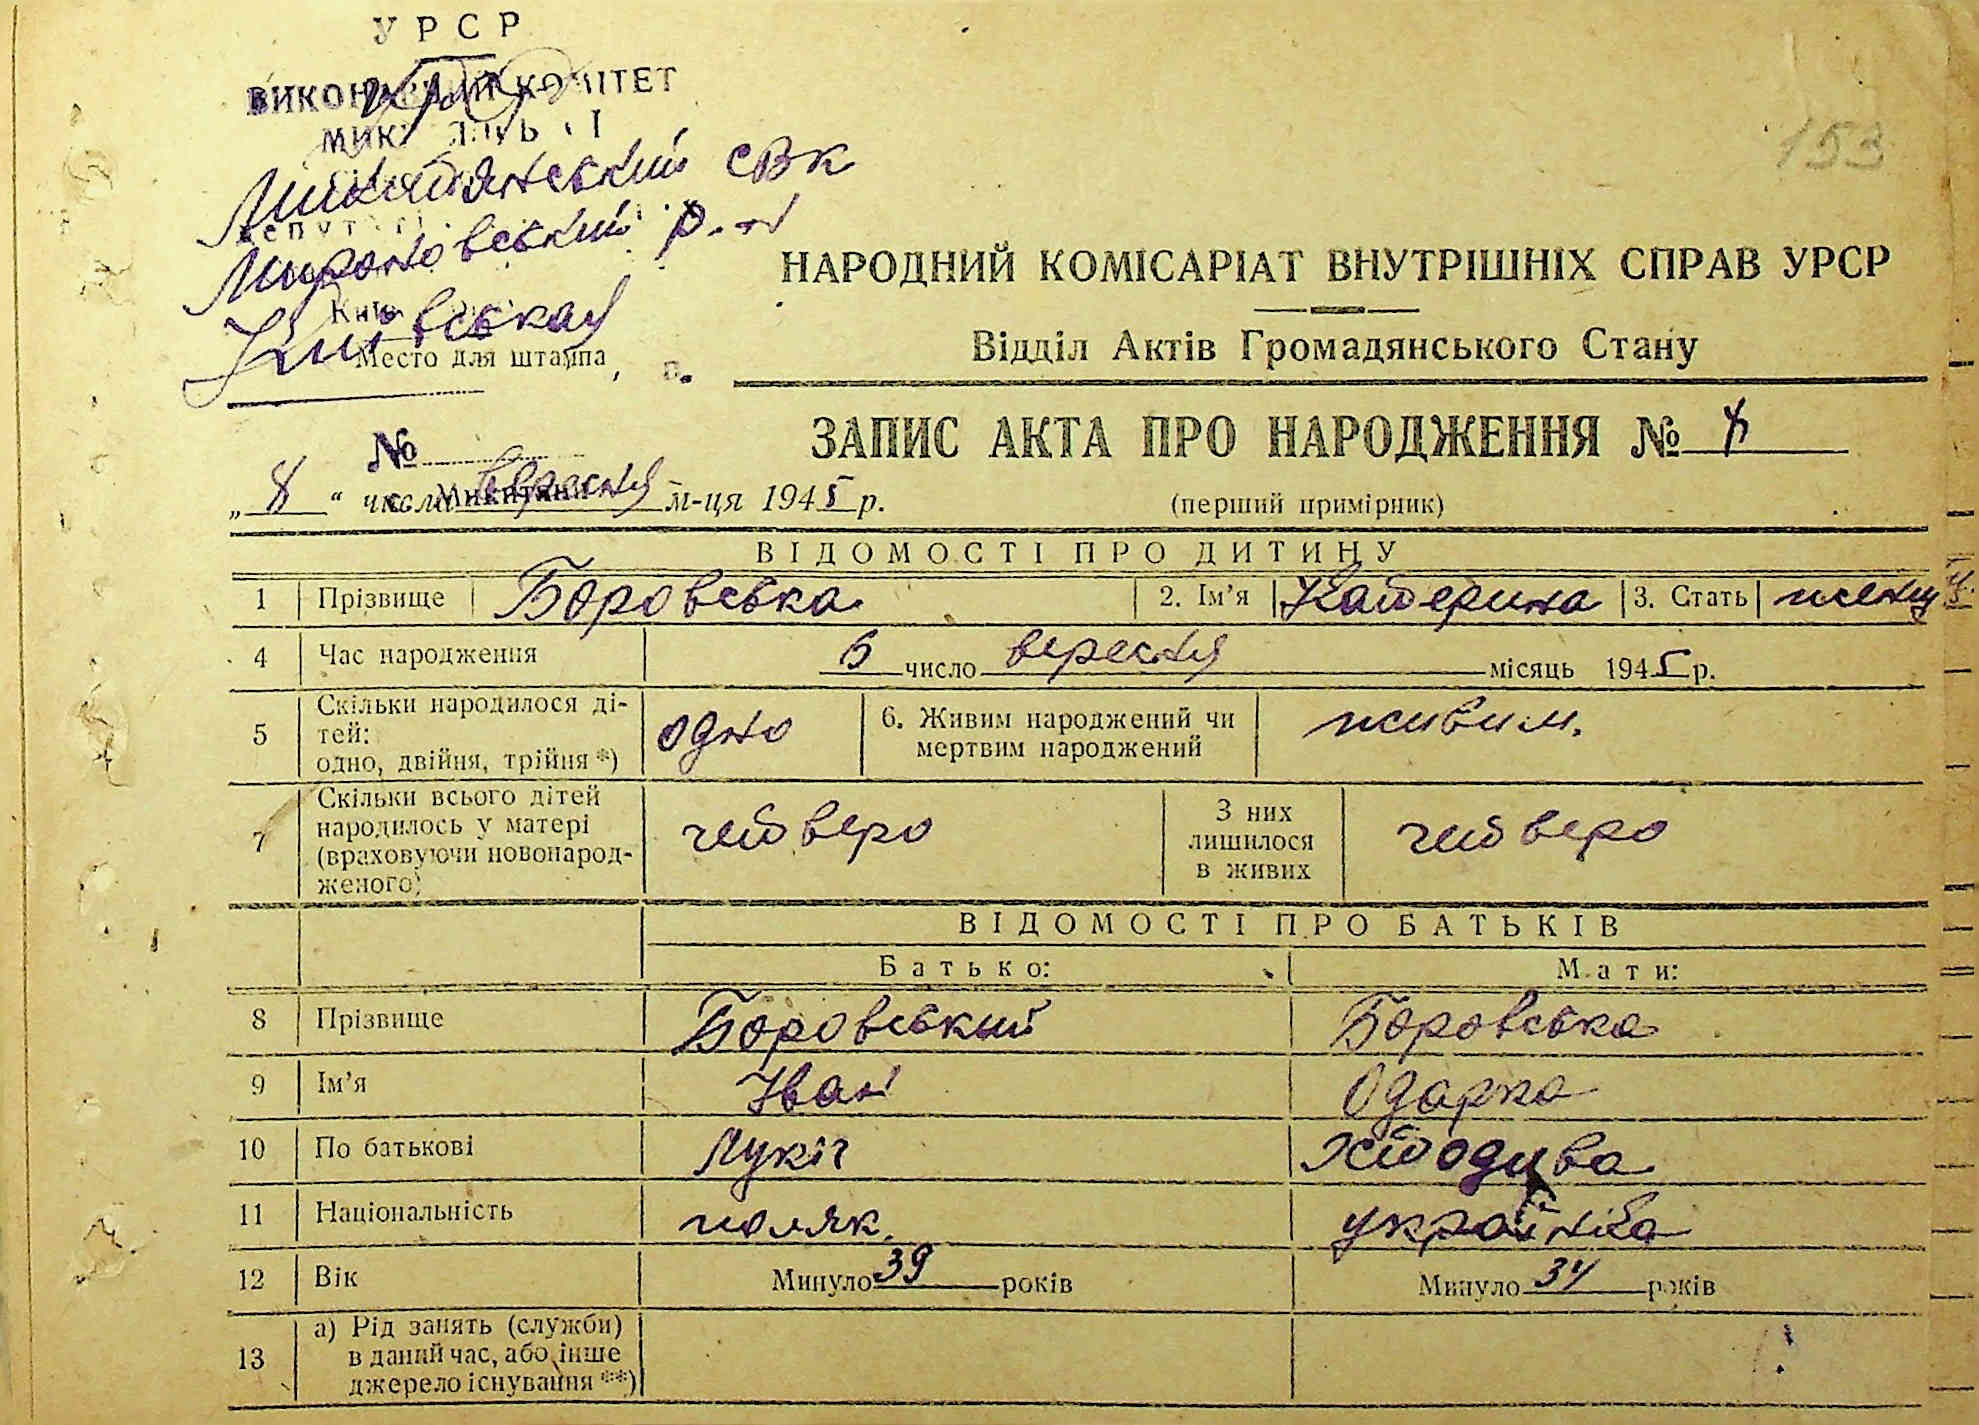 УРСР
ВИКОНАВЧИЙ КОМІТЕТ
Микитянський СВК
Мироновський р.н
Київська
Место для штампа
153
НАРОДНИЙ КОМІСАРІАТ ВНУТРІШНІХ СПРАВ УРСР
Відділ Актів Громадянського Стану
№
ЗАПИС АКТА ПРО НАРОДЖЕННЯ №
„ 8 “ числа вересня м-ця 1945 р.
(перший примірник)
ВІДОМОСТІ ПРО ДИТИНУ
1 Прізвище Боровська 2. Ім’я Катерина 3. Стать
4 Час народження 6 число вересня місяць 1945 р.
5 Скільки народилося ді-
тей:
одно, двійня, трійня *) одно 6. Живим народжений чи
мертвим народжений живим.
7 Скільки всього дітей
народилось у матері
(враховуючи новонарод-
женого) четверо З них
лишилося
в живих четверо
ВІДОМОСТІ ПРО БАТЬКІВ
Батько: Мати:
8 Прізвище Боровський Боровська
9 Ім’я Іван Одарка
10 По батькові Лукіч
11 Національність поляк. українка
12 Вік Минуло 39 років Минуло 34 років
13 а) Рід занять (служби)
в даний час, або інше
джерело існування **)